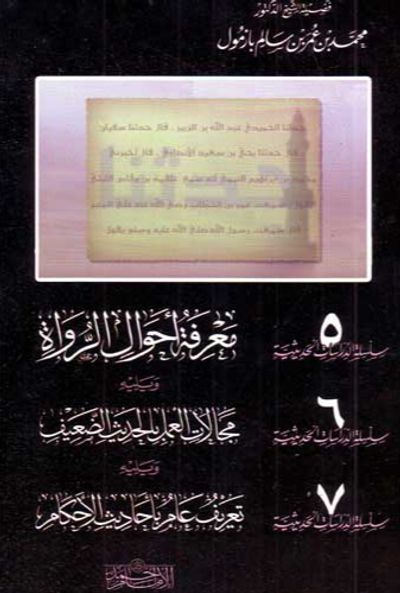 فضيلة الشيخ الدكتور
محمد بن عمر بن سالم بازمول
حدثنا الحميدي عبد الله بن الزبير ، قال حدثنا سفيان
قال حدثنا يحيى بن سعيد الأنصاري ، قال أخبرني
محمد بن إبراهيم التيمي أنه سمع علقمة بن وقاص الليثي
يقول سمعت عمر بن الخطاب رضي الله عنه على المنبر
قال سمعت رسول الله صلى الله عليه وسلم يقول
٥
سلسلة الدراسات الحديثية
معرفة أحوال الرواة
ويليه
٦
سلسلة الدراسات الحديثية
مجالات العمل بالحديث الضعيف
ويليه
٧
سلسلة الدراسات الحديثية
تعريف عام بأحاديث الأحكام